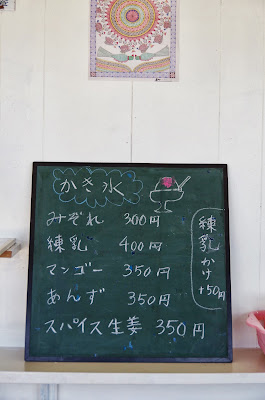 かき氷
みぞれ 300円
練乳 400円
マンゴー 350円
あんず 350円
スパイス生姜 350円
練乳かけ
+50円